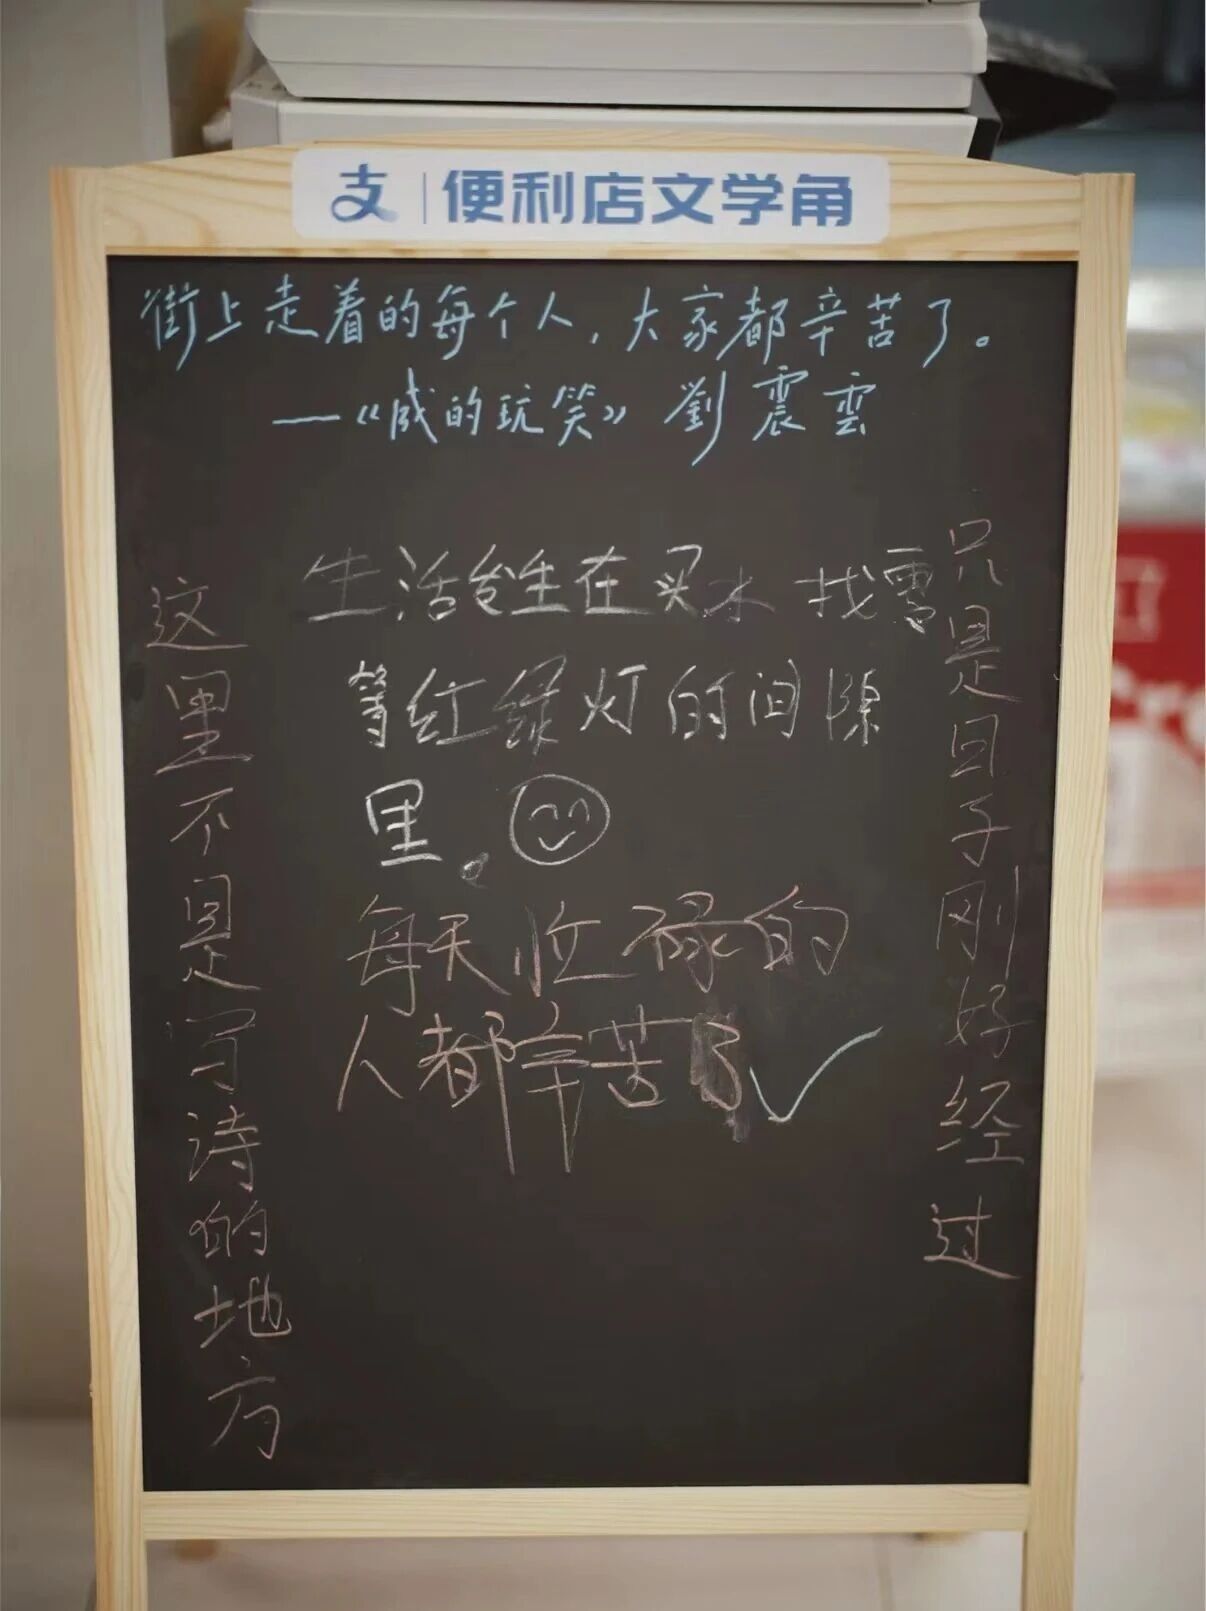 支 | 便利店文学角
街上走着的每个人，大家都辛苦了。
——《咸的玩笑》劉震雲
生活发生在买水 找零
等红绿灯的间隙
里。
每天忙碌的
人都辛苦了
只是日子刚好经过
这里不是写诗的地方